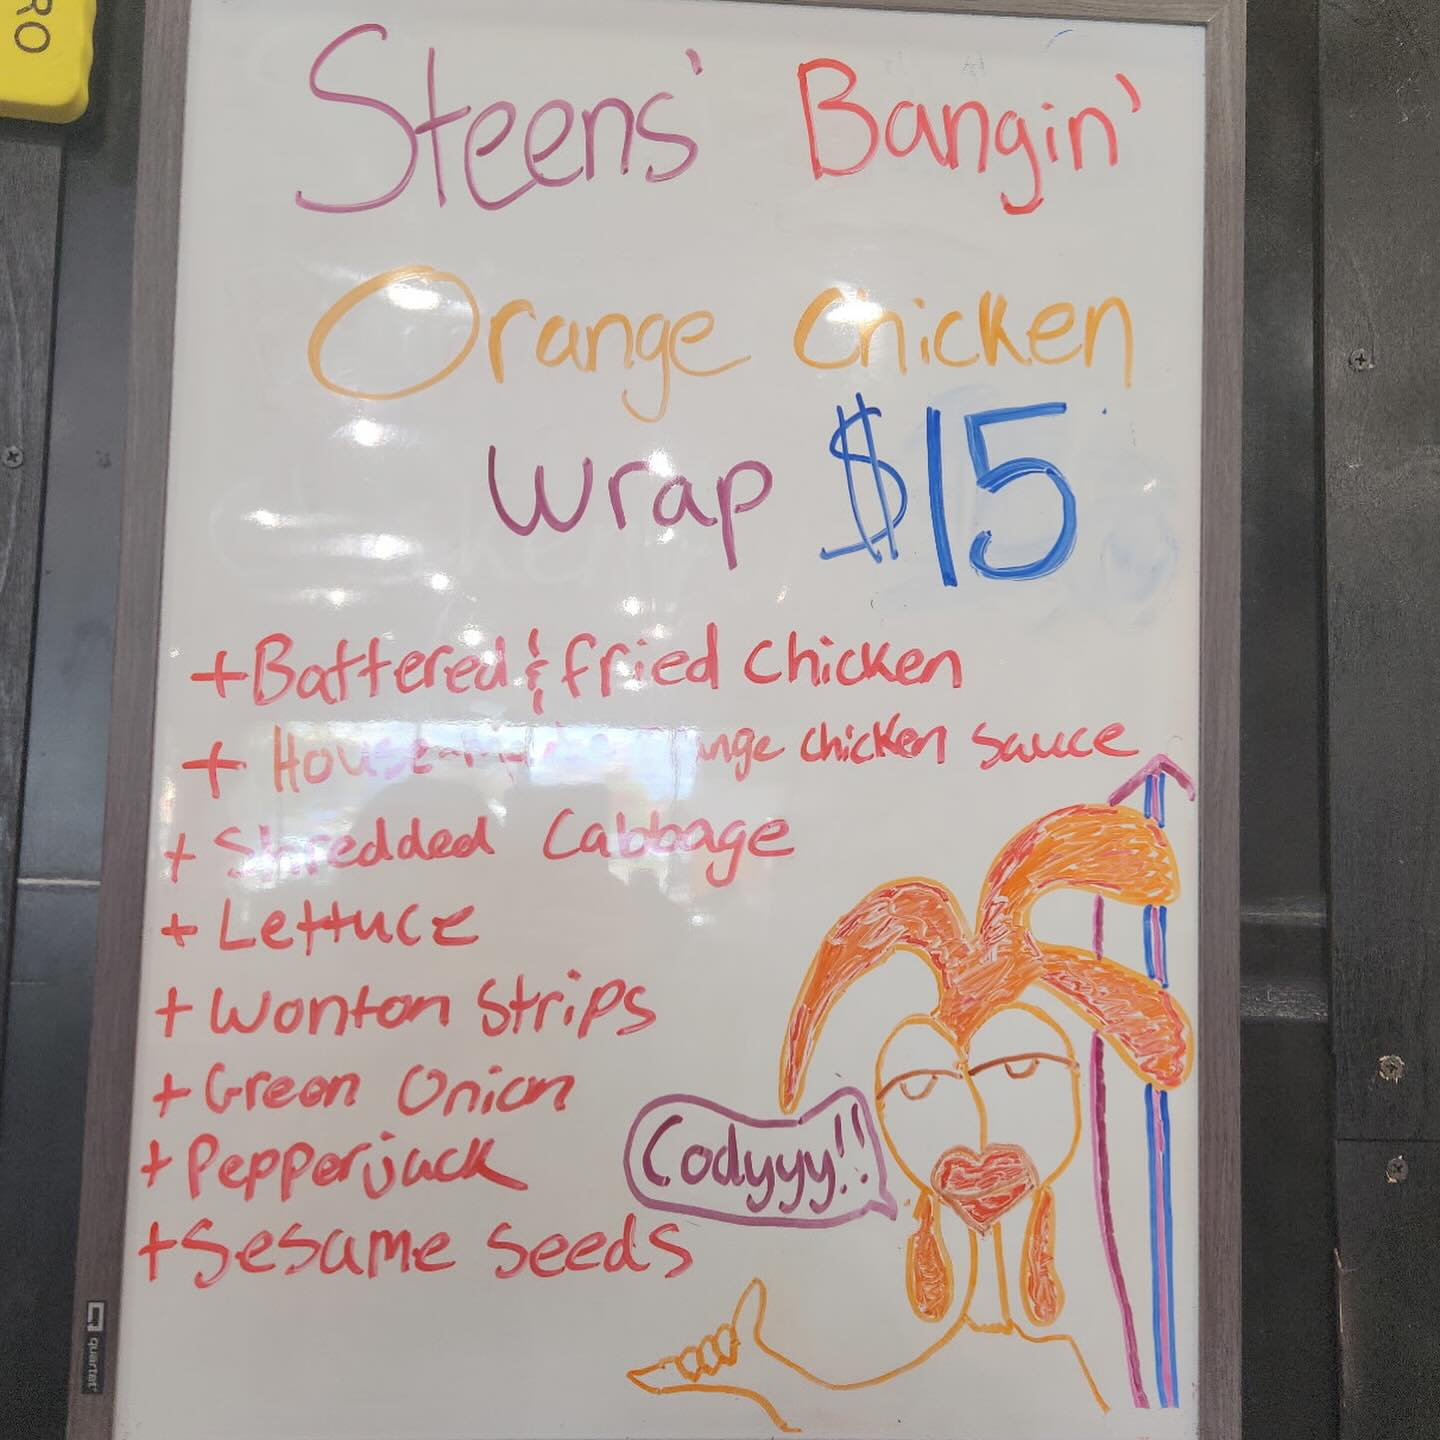 RO
Steens' Bangin'
Orange Chicken
Wrap $15
+Battered & fried chicken
+ House-made orange chicken sauce
+ Shredded Cabbage
+ Lettuce
+ Wonton Strips
+ Green Onion
+ Pepperjack
+ Sesame seeds
Codyyy!!
quartet